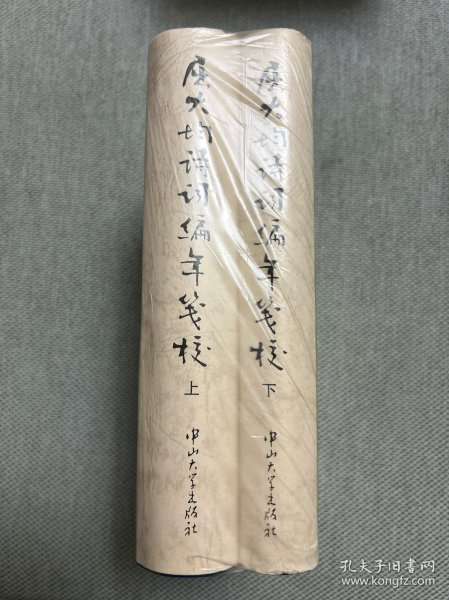 屈大均诗词编年笺校
上
中山大学出版社
屈大均诗词编年笺校
下
中山大学出版社
孔夫子旧书网
www.kongfz.com